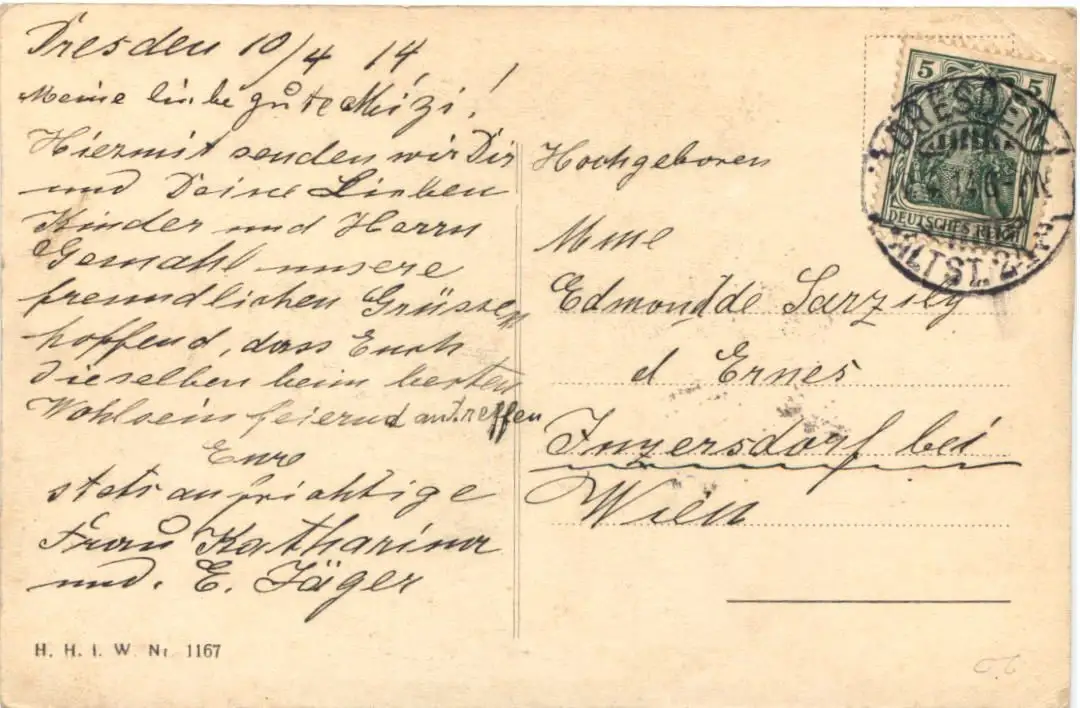 Dresden 10/4 14
Meine liebe gute Mizi!
Hiermit senden wir Dir
und Deine Lieben
Kinder und Herrn
Gemahl unsere
freundlichen Grüssen
hoffend, dass Euch
dieselben beim besten
Wohlsein feiernd antreffen
Eure
stets aufrichtige
Frau Katharina
und. E. Jäger
H. H. i. W. Nr. 1167
Hochgeboren
Mme
Edmond de Sarzily
d Ernes
Inzersdorf bei
Wien
5 5
DEUTSCHES REICH
DRESDEN
ALTST. 24